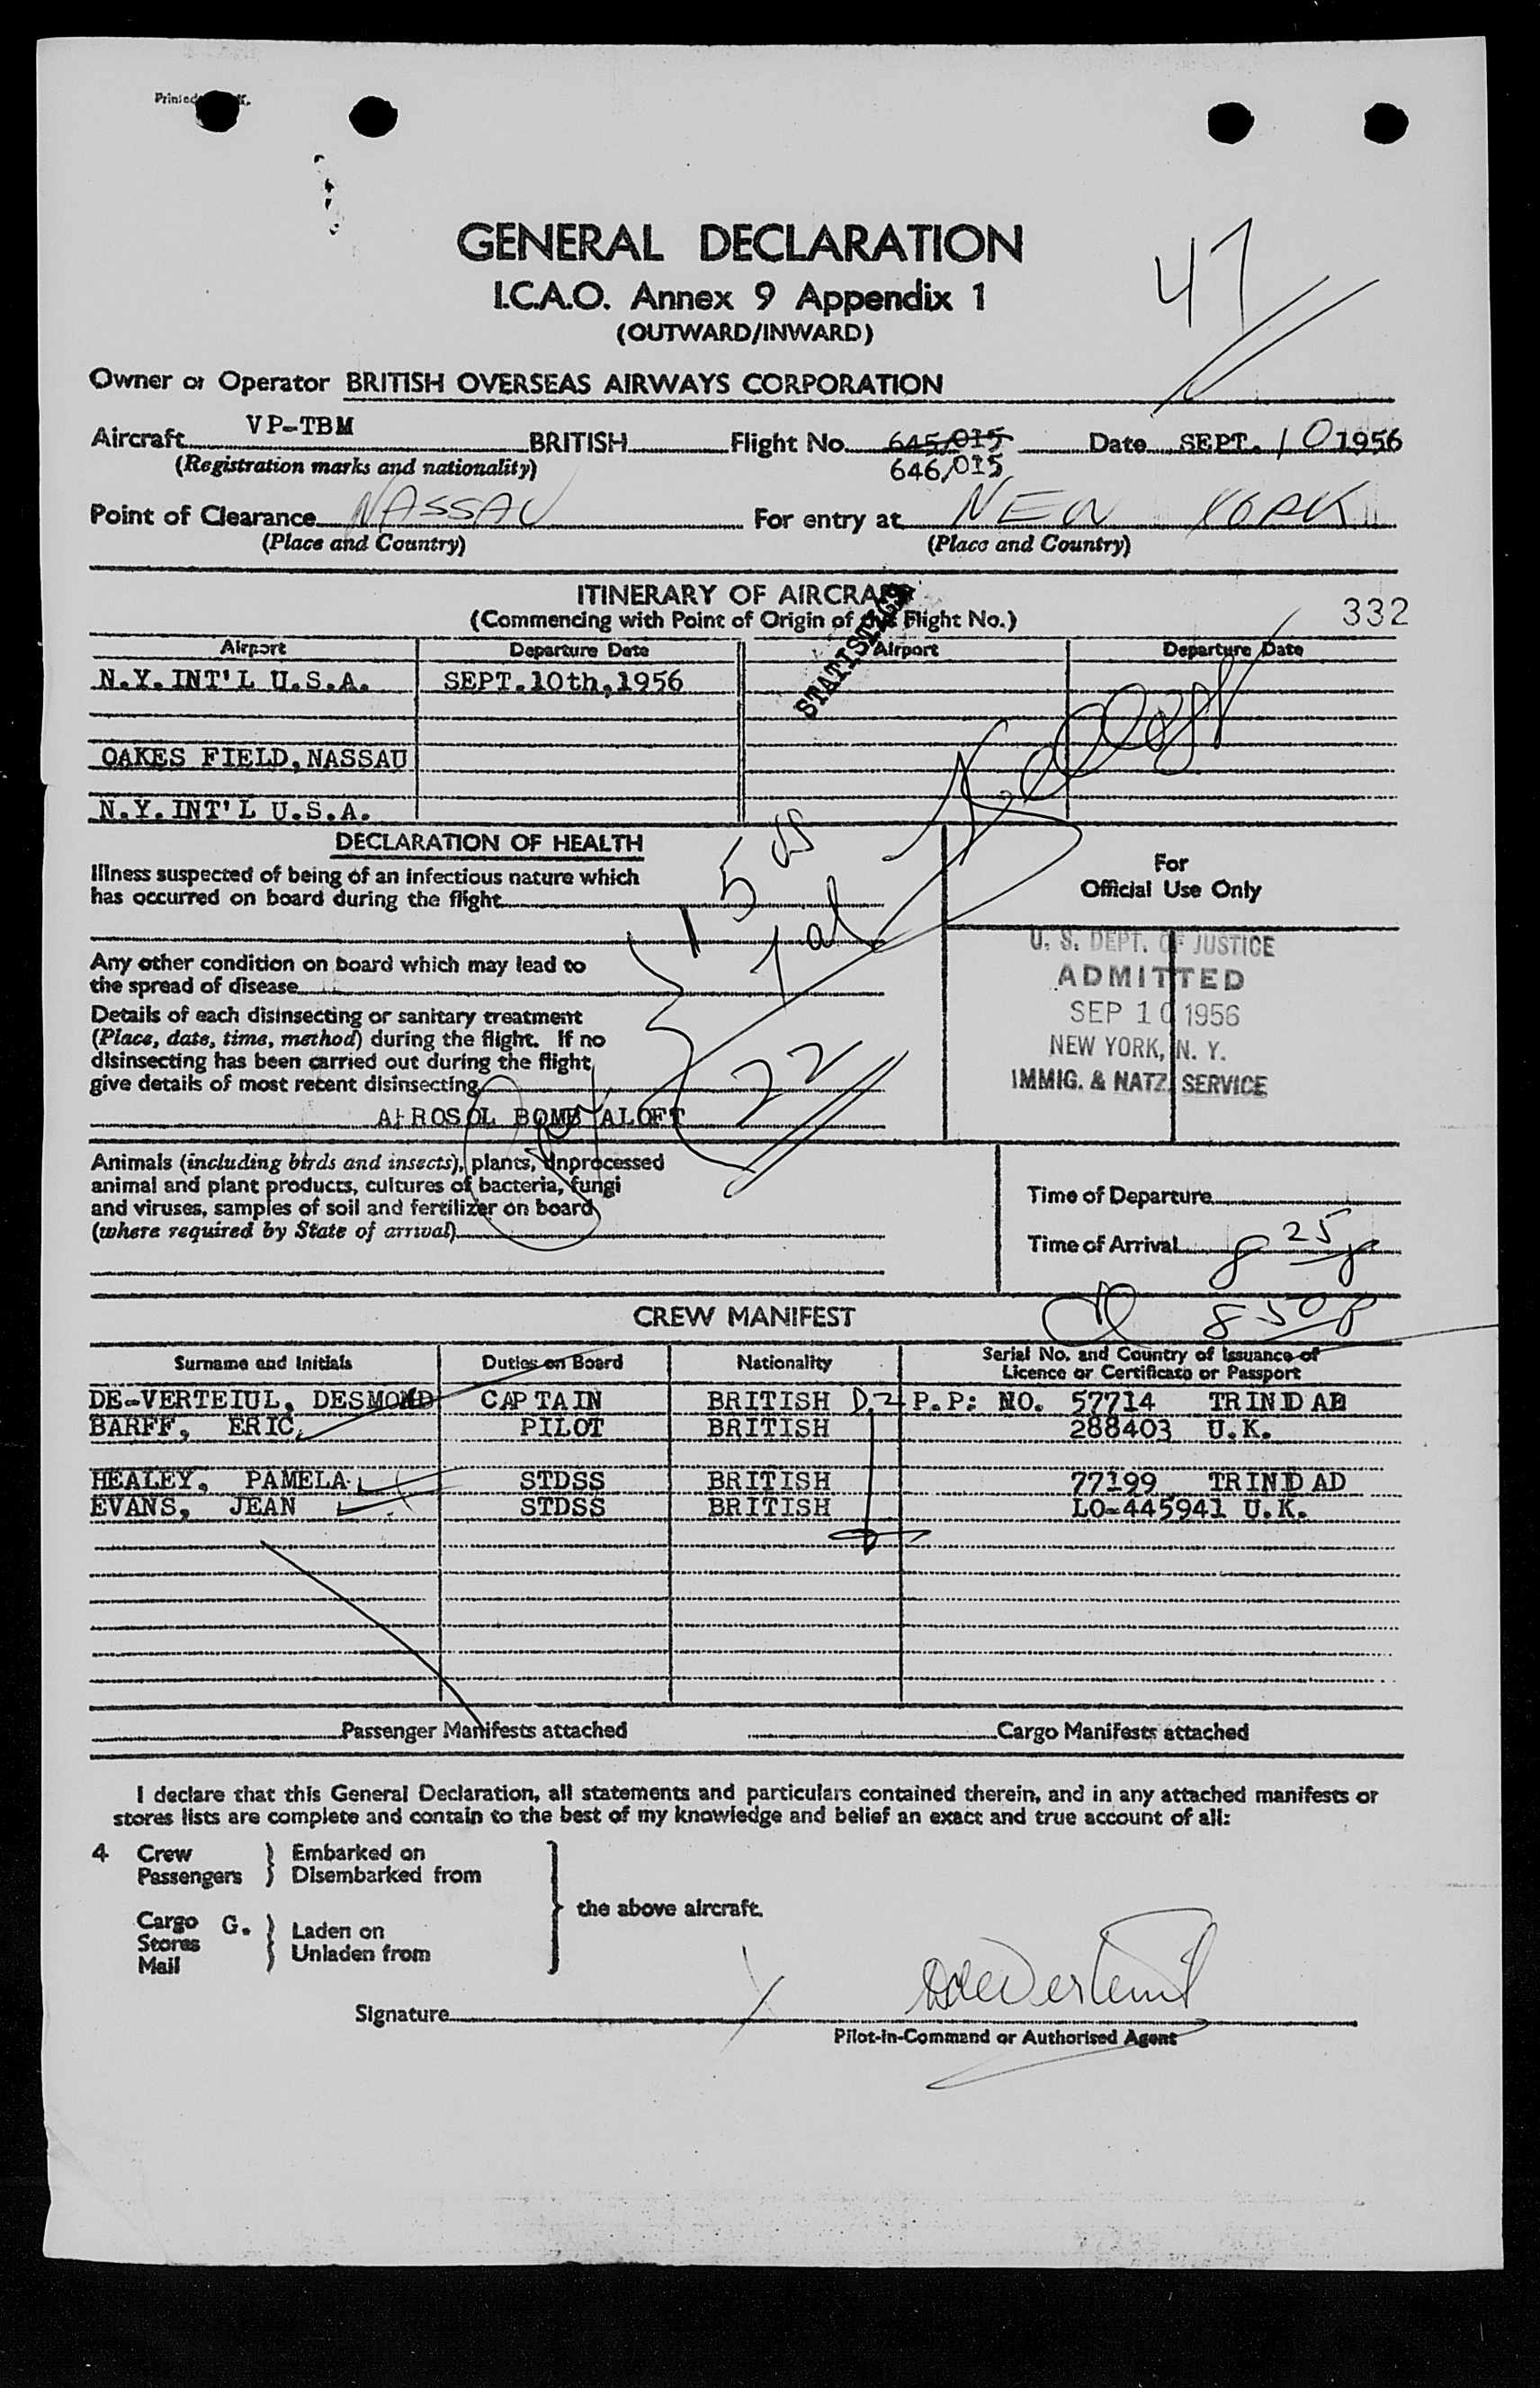 GENERAL DECLARATION
I.C.A.O. Annex 9 Appendix 1
(OUTWARD/INWARD)
47
Owner or Operator BRITISH OVERSEAS AIRWAYS CORPORATION
Aircraft VP-TBM BRITISH Flight No. 645/015 Date SEPT. 10 1956
(Registration marks and nationality) 646/015
Point of Clearance NASSAU For entry at NEW YORK
(Place and Country) (Place and Country)
ITINERARY OF AIRCRAFT
(Commencing with Point of Origin of this Flight No.) 332
STATISTICS
Airport Departure Date Airport Departure Date
N.Y. INT'L U.S.A. SEPT.10th,1956
OAKES FIELD, NASSAU
N.Y. INT'L U.S.A.
DECLARATION OF HEALTH
Illness suspected of being of an infectious nature which
has occurred on board during the flight
5 us
1 al
22
For
Official Use Only
Any other condition on board which may lead to
the spread of disease
Details of each disinsecting or sanitary treatment
(Place, date, time, method) during the flight. If no
disinsecting has been carried out during the flight
give details of most recent disinsecting
AEROSOL BOMB ALOFT
U. S. DEPT. OF JUSTICE
ADMITTED
SEP 10 1956
NEW YORK, N. Y.
IMMIG. & NATZ. SERVICE
Animals (including birds and insects), plants, unprocessed
animal and plant products, cultures of bacteria, fungi
and viruses, samples of soil and fertilizer on board
(where required by State of arrival)
Time of Departure
Time of Arrival 8 25 p
8 50 p
CREW MANIFEST
Surname and Initials Duties on Board Nationality Serial No. and Country of Issuance of
Licence or Certificate or Passport
DE-VERTEIUL, DESMOND CAPTAIN BRITISH D.2 P.P: NO. 57714 TRINIDAD
BARFF, ERIC. PILOT BRITISH 288403 U.K.
HEALEY, PAMELA STDSS BRITISH 77199 TRINIDAD
EVANS, JEAN STDSS BRITISH LO-445941 U.K.
Passenger Manifests attached Cargo Manifests attached
I declare that this General Declaration, all statements and particulars contained therein, and in any attached manifests or
stores lists are complete and contain to the best of my knowledge and belief an exact and true account of all:
4 Crew } Embarked on
Passengers } Disembarked from
the above aircraft.
Cargo G. } Laden on
Stores
Mail } Unladen from
Signature X DdeVerteuil
Pilot-in-Command or Authorised Agent